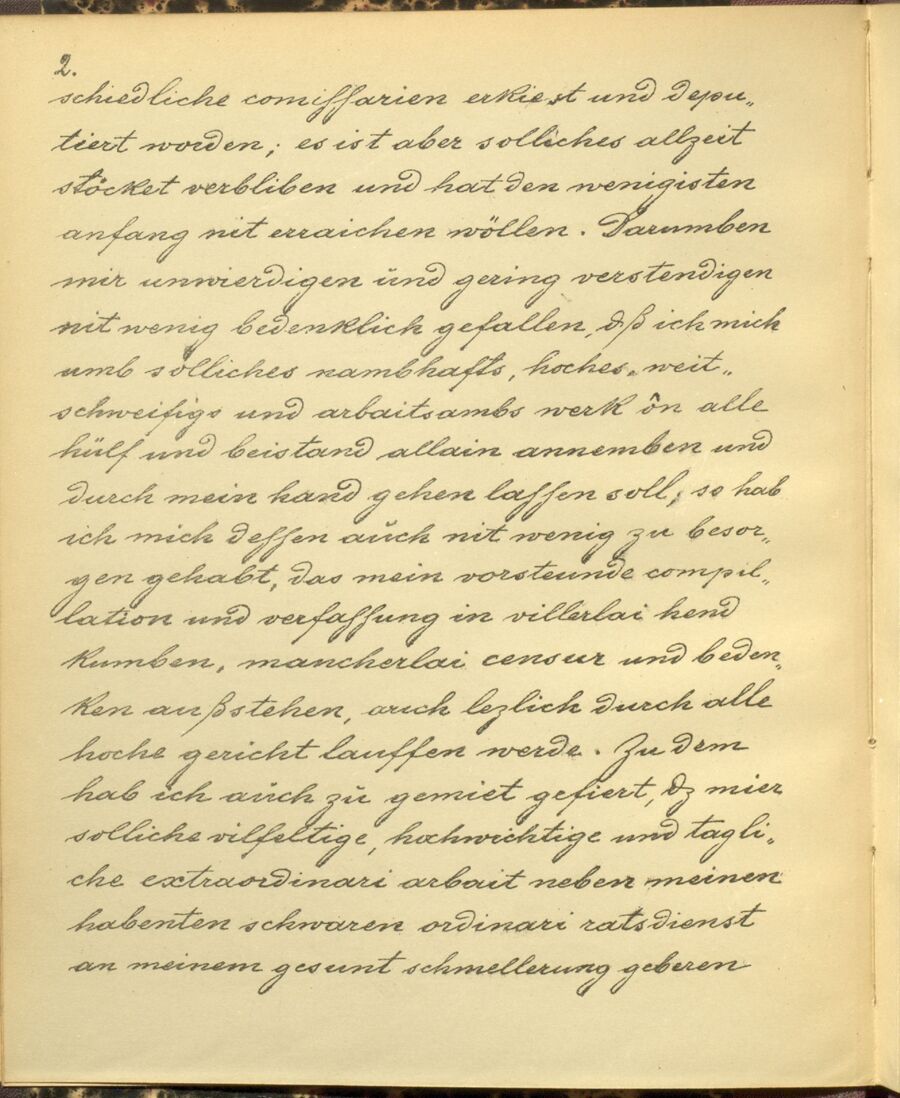 2.
schiedliche comissarien erkiest und depu„
tiert worden; es ist aber solliches allzeit
stöcket verbliben und hat den wenigisten
anfang nit erraichen wöllen. Darumben
mir unwierdigen ünd gering verstendigen
nit wenig bedenklich gefallen, dß ich mich
umb solliches nambhafts, hoches, weit„
schweifigs und arbaitsambs werk ôn alle
hülf und beistand allain annemben und
durch mein hand gehen lassen soll; so hab
ich mich dessen aŭch nit wenig zu besor„
gen gehabt, das mein vorsteunde compil„
lation und verfassung in villerlai hend
kumben, mancherlai censur und beden„
ken außstehen, auch lezlich durch alle
hoche gericht lauffen werde. Zu dem
hab ich aŭch zŭ gemiet gefiert, dz mier
solliche vilfeltige, hochwichtige und tagli„
che extraordinari arbait neben meinen
habenten schwaren ordinari ratsdienst
an meinem gesunt schmellerung geberen